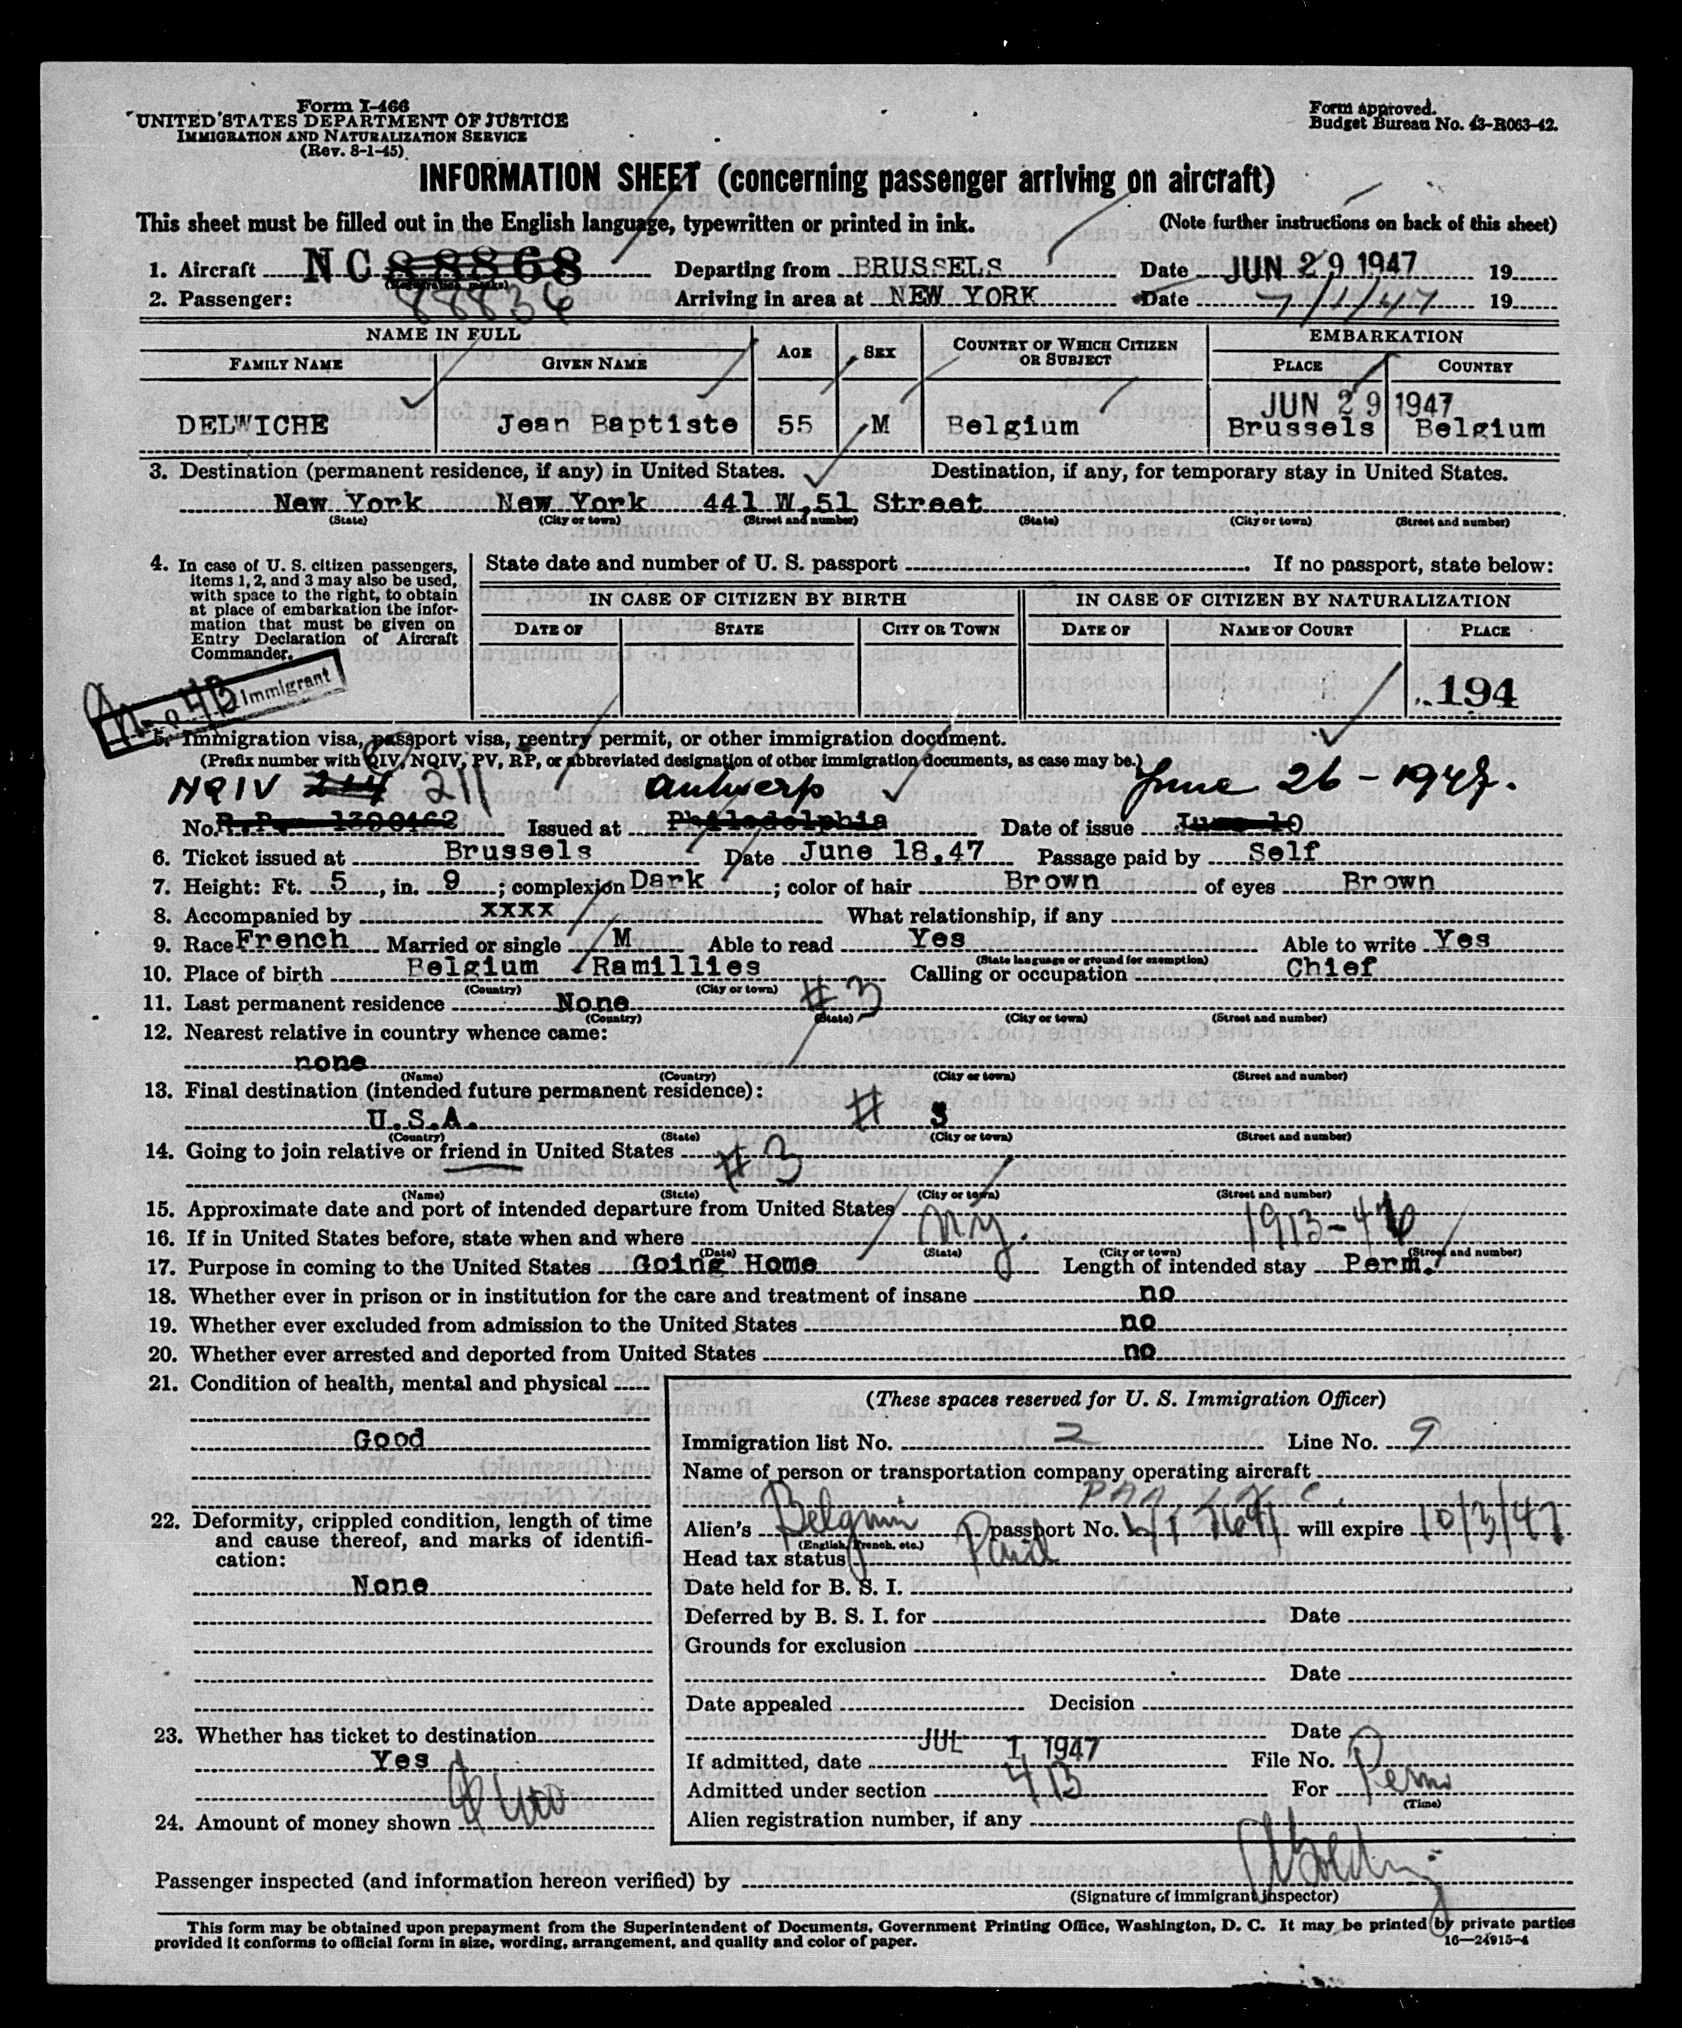 Form I-466
UNITED STATES DEPARTMENT OF JUSTICE
IMMIGRATION AND NATURALIZATION SERVICE
(Rev. 8-1-45)
Form approved.
Budget Bureau No. 43-R063-42.
INFORMATION SHEET (concerning passenger arriving on aircraft)
This sheet must be filled out in the English language, typewritten or printed in ink. (Note further instructions on back of this sheet)
1. Aircraft NC 88868 Departing from BRUSSELS Date JUN 29 1947 19
(Registration marks)
2. Passenger: 88836 Arriving in area at NEW YORK Date 7/1/47 19
NAME IN FULL AGE SEX COUNTRY OF WHICH CITIZEN OR SUBJECT EMBARKATION
FAMILY NAME GIVEN NAME PLACE COUNTRY
JUN 29 1947
DELWICHE Jean Baptiste 55 M Belgium Brussels Belgium
3. Destination (permanent residence, if any) in United States. Destination, if any, for temporary stay in United States.
New York New York 441 W.51 Street
(State) (City or town) (Street and number) (State) (City or town) (Street and number)
4. In case of U. S. citizen passengers, items 1, 2, and 3 may also be used, with space to the right, to obtain at place of embarkation the information that must be given on Entry Declaration of Aircraft Commander.
State date and number of U. S. passport If no passport, state below:
IN CASE OF CITIZEN BY BIRTH IN CASE OF CITIZEN BY NATURALIZATION
DATE OF STATE CITY OR TOWN DATE OF NAME OF COURT PLACE
194
Immigrant
4B
5. Immigration visa, passport visa, reentry permit, or other immigration document.
(Prefix number with QIV, NQIV, PV, RP, or abbreviated designation of other immigration documents, as case may be.)
NQIV 211 Antwerp June 26 - 1947.
No. Issued at Philadelphia Date of issue June 10
6. Ticket issued at Brussels Date June 18.47 Passage paid by Self
7. Height: Ft. 5, in. 9; complexion Dark; color of hair Brown of eyes Brown
8. Accompanied by xxxx What relationship, if any
9. Race French Married or single M Able to read Yes Able to write Yes
(State language or ground for exemption)
10. Place of birth Belgium Ramillies Calling or occupation Chief
(Country) (City or town)
11. Last permanent residence None #3
(Country) (State) (City or town) (Street and number)
12. Nearest relative in country whence came:
none
(Name) (Country) (City or town) (Street and number)
13. Final destination (intended future permanent residence):
U.S.A. # 3
(Country) (State) (City or town) (Street and number)
14. Going to join relative or friend in United States #3
(Name) (State) (City or town) (Street and number)
15. Approximate date and port of intended departure from United States
16. If in United States before, state when and where N.Y. 1913-46
(Date) (State) (City or town) (Street and number)
17. Purpose in coming to the United States Going Home Length of intended stay Perm.
18. Whether ever in prison or in institution for the care and treatment of insane no
19. Whether ever excluded from admission to the United States no
20. Whether ever arrested and deported from United States no
21. Condition of health, mental and physical
Good
22. Deformity, crippled condition, length of time and cause thereof, and marks of identification:
None
23. Whether has ticket to destination
Yes
24. Amount of money shown
(These spaces reserved for U. S. Immigration Officer)
Immigration list No. 2 Line No. 9
Name of person or transportation company operating aircraft
PAA Inc.
Alien's Belgium passport No. will expire 10/3/47
(English, French, etc.)
Head tax status Paid
Date held for B. S. I.
Deferred by B. S. I. for Date
Grounds for exclusion
Date
Date appealed Decision
Date
If admitted, date JUL 1 1947 File No.
Admitted under section 4B For Perm
(Time)
Alien registration number, if any
Passenger inspected (and information hereon verified) by
(Signature of immigrant inspector)
This form may be obtained upon prepayment from the Superintendent of Documents, Government Printing Office, Washington, D. C. It may be printed by private parties
provided it conforms to official form in size, wording, arrangement, and quality and color of paper.
16—24915-4